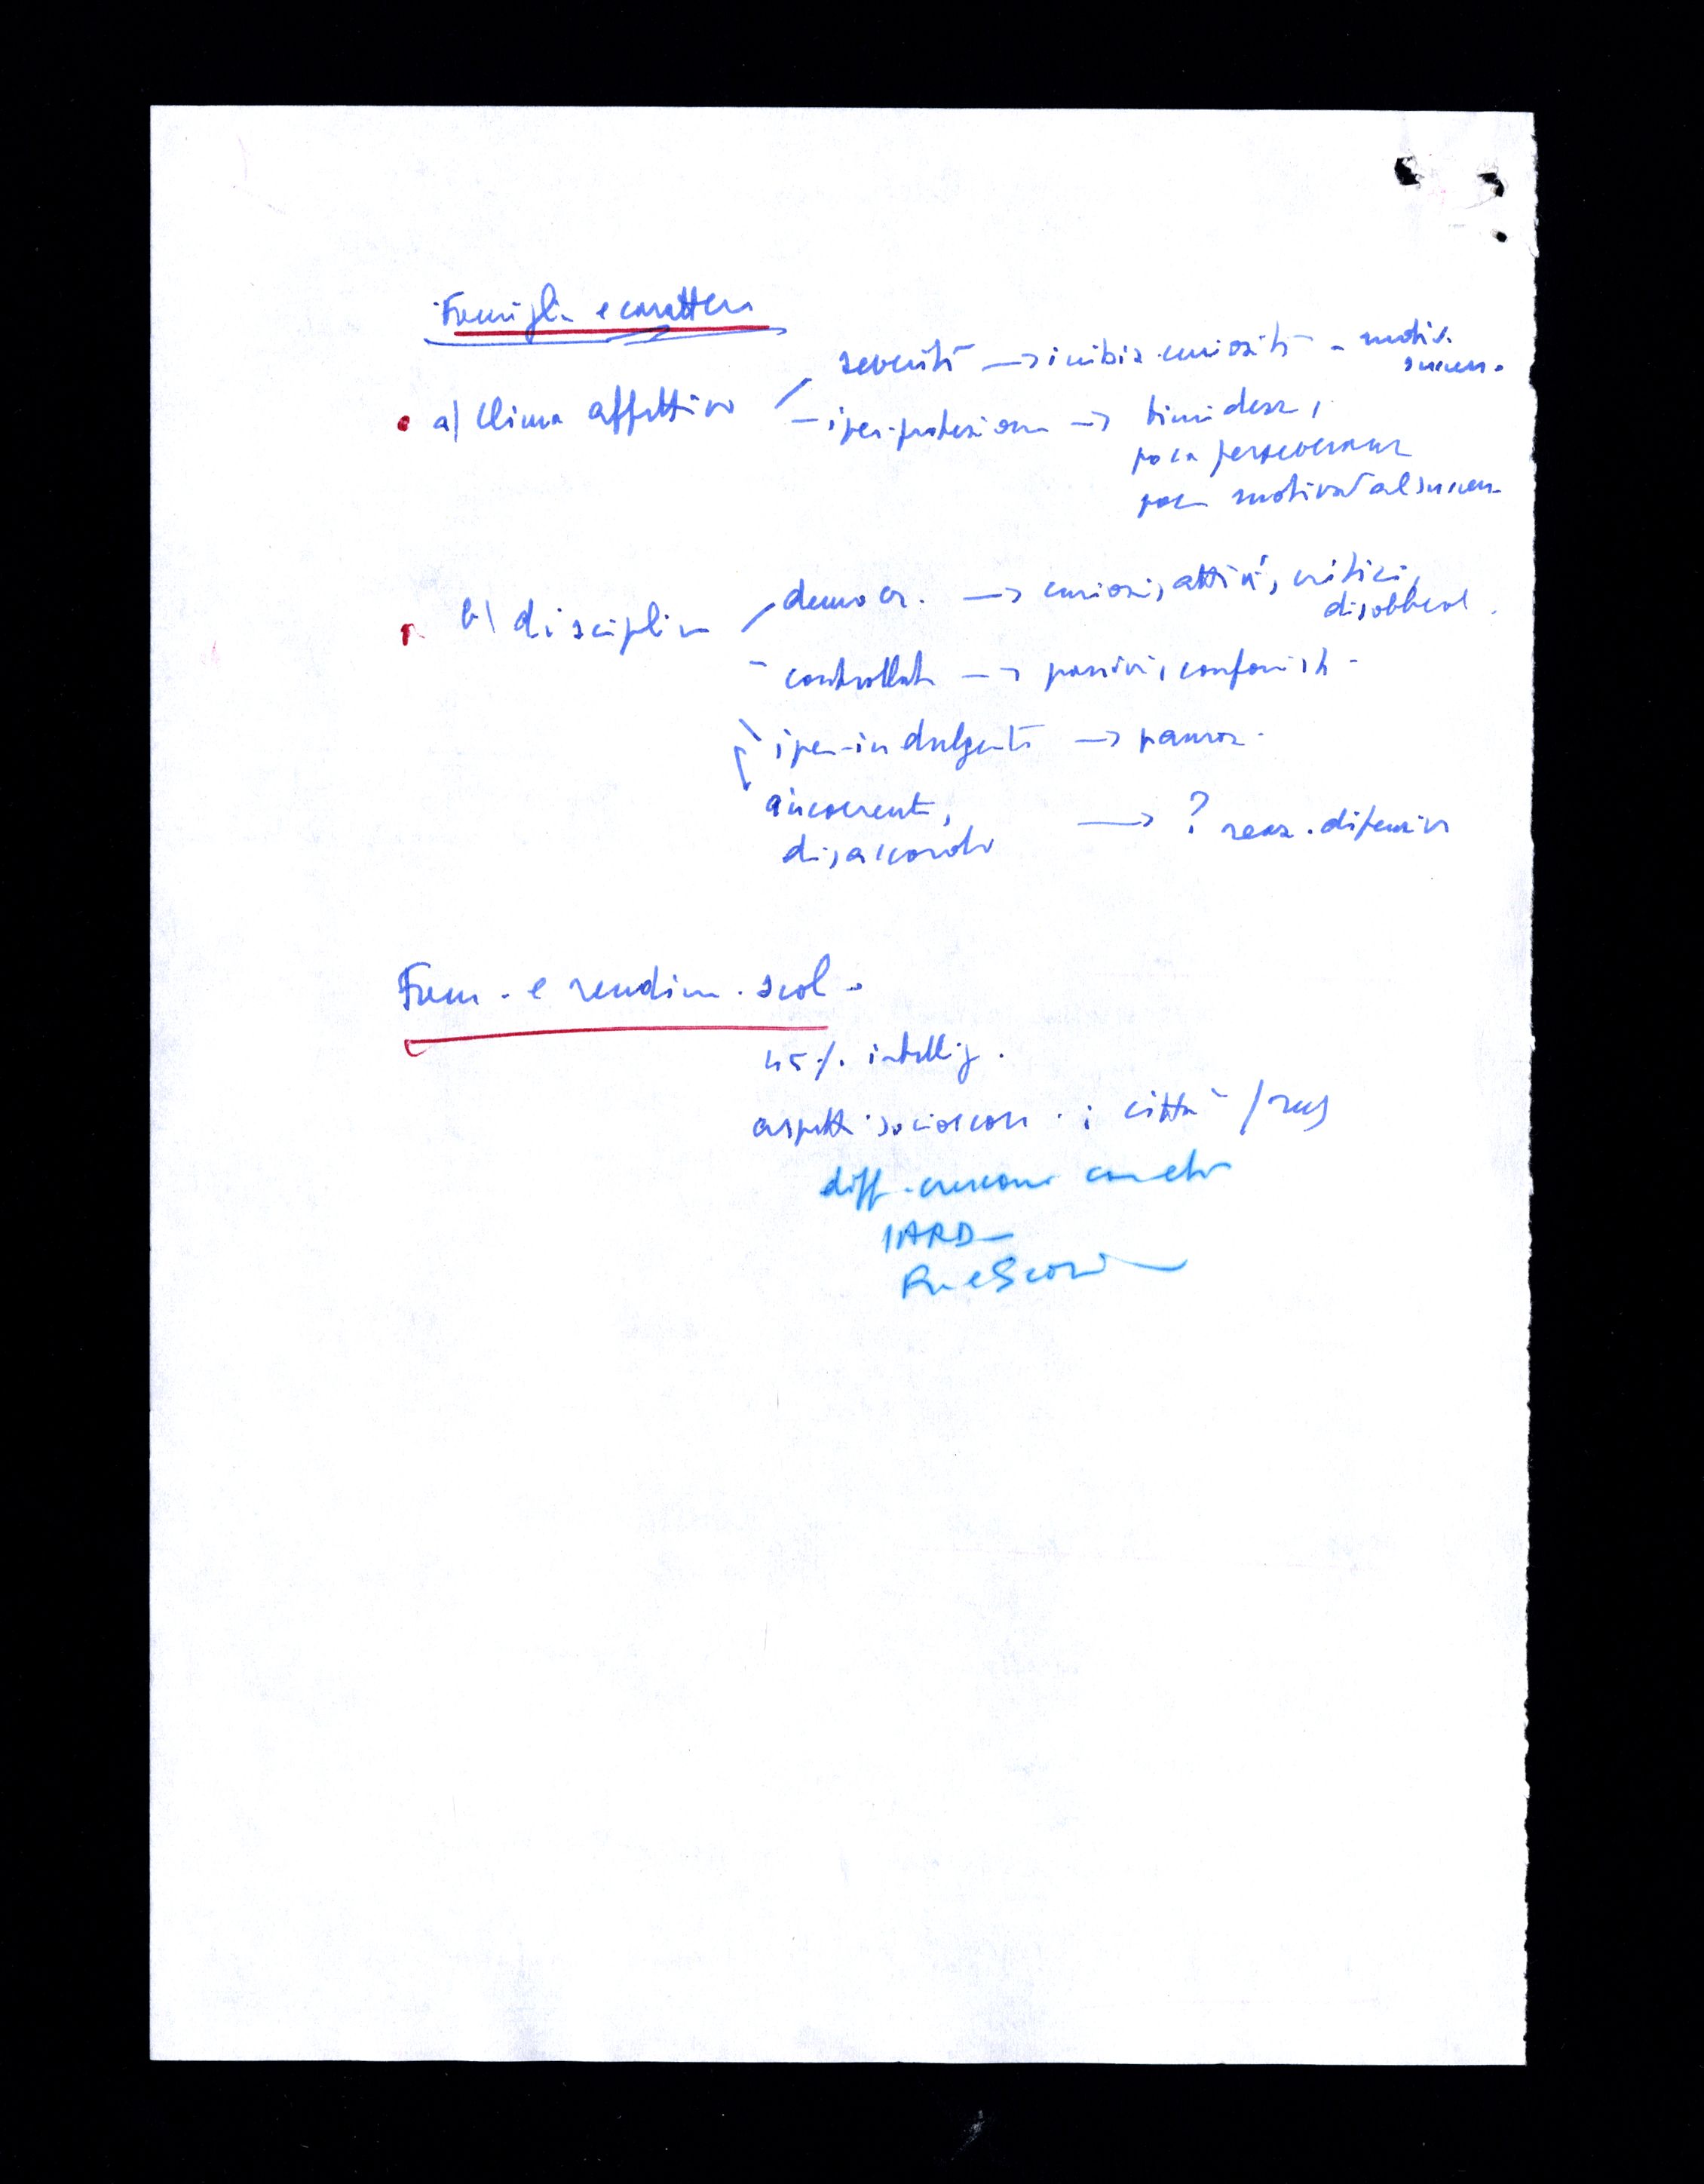 Famiglia e carattere
a) Clima affettivo
severità → inibiz. curiosità - motiv. success.
- iper-protezione → timidezza,
poca perseveranza
poca motivaz al success.
b) disciplina
democr. → curiosi, attivi, critici,
disobbed.
- controllata → passivi, conformisti -
iper-indulgente → paurosi.
incoerente,
disaccordo → ? reaz. difensiva
Fam. e rendim. scol.
45 % intellig.
aspetti socioecon. ; città /
diff. crescono con età
IARD -